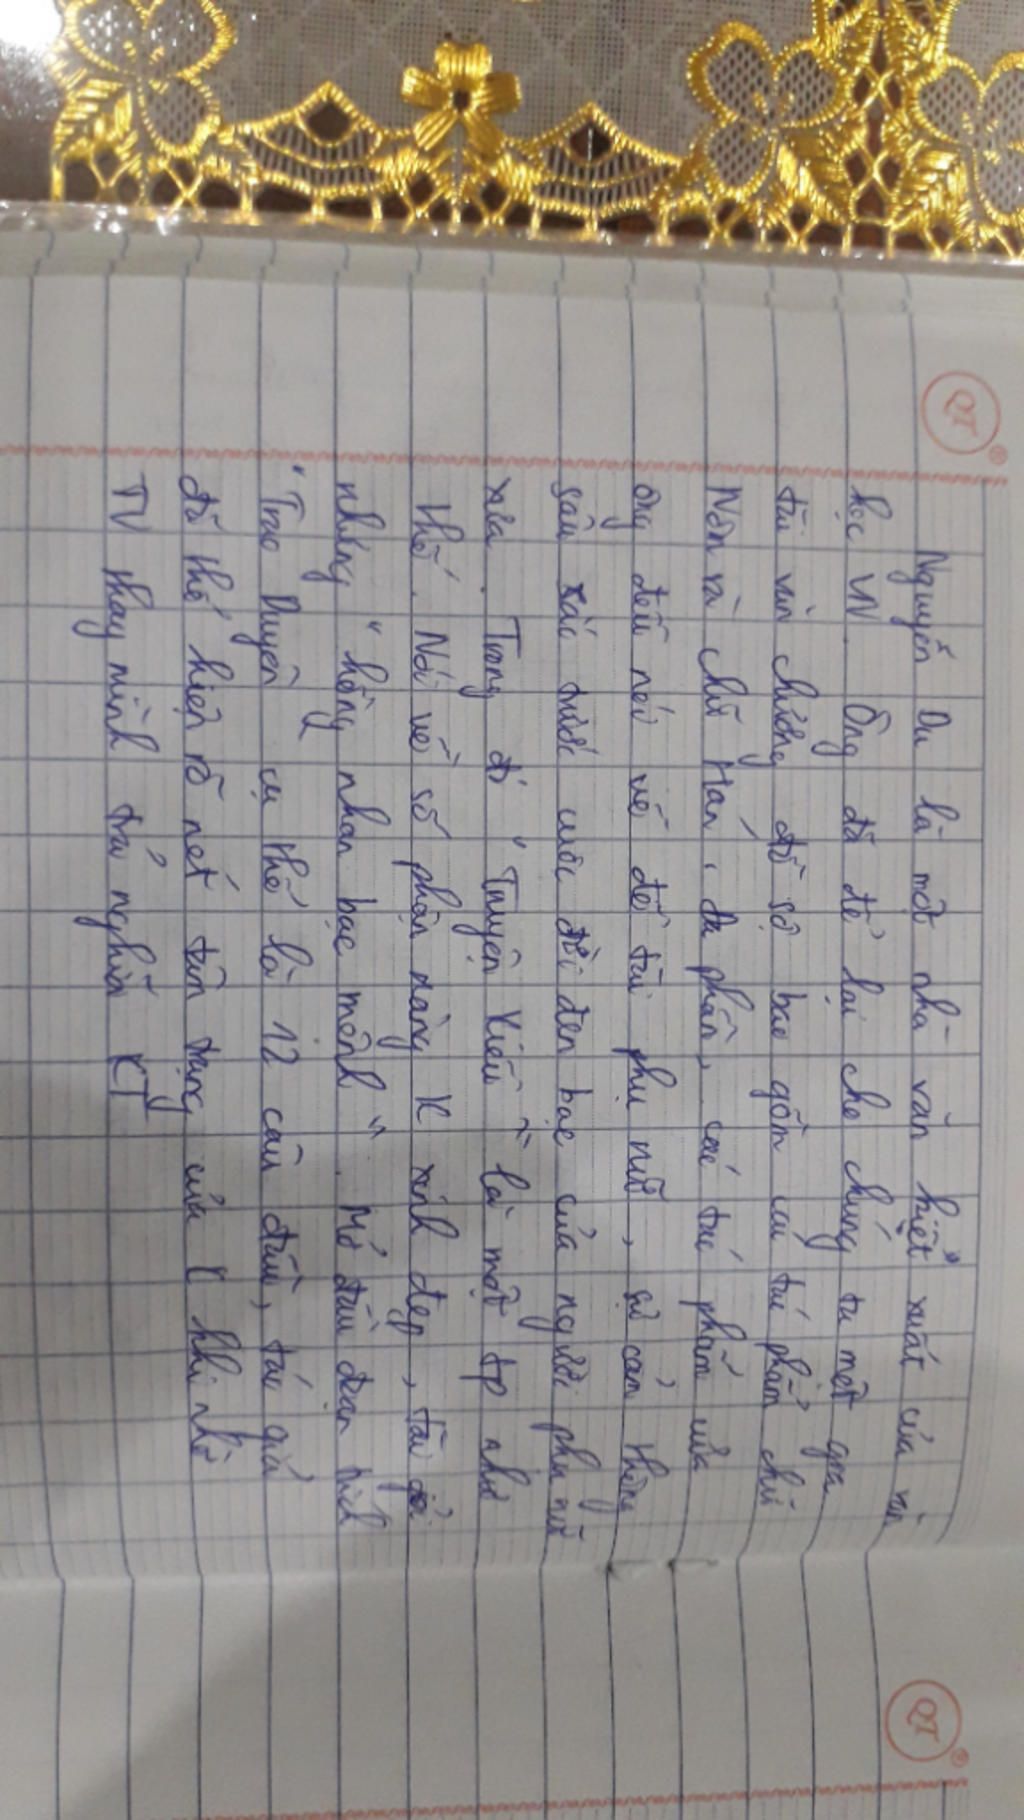 QT
Nguyễn Du là một nhà văn kiệt xuất của văn
học VN. Ông đã để lại cho chúng ta một gia
tài văn chương đồ sộ bao gồm các tác phẩm chữ
Nôm và chữ Hán, đa phần, các tác phẩm của
ông đều nói về đề tài phụ nữ, sự cảm thông
sâu sắc trước cuộc đời đen bạc của người phụ nữ
xưa. Trong đó "Truyện Kiều" là một tp như
thế. Nói về số phận nàng K xinh đẹp, tài giỏi
nhưng "hồng nhan bạc mệnh". Mở đầu đoạn trích
"Trao Duyên cụ thể là 12 câu đầu, tác giả
đã thể hiện rõ nét tâm trạng của K khi nhờ
TV thay mình trả nghĩa KT
QT